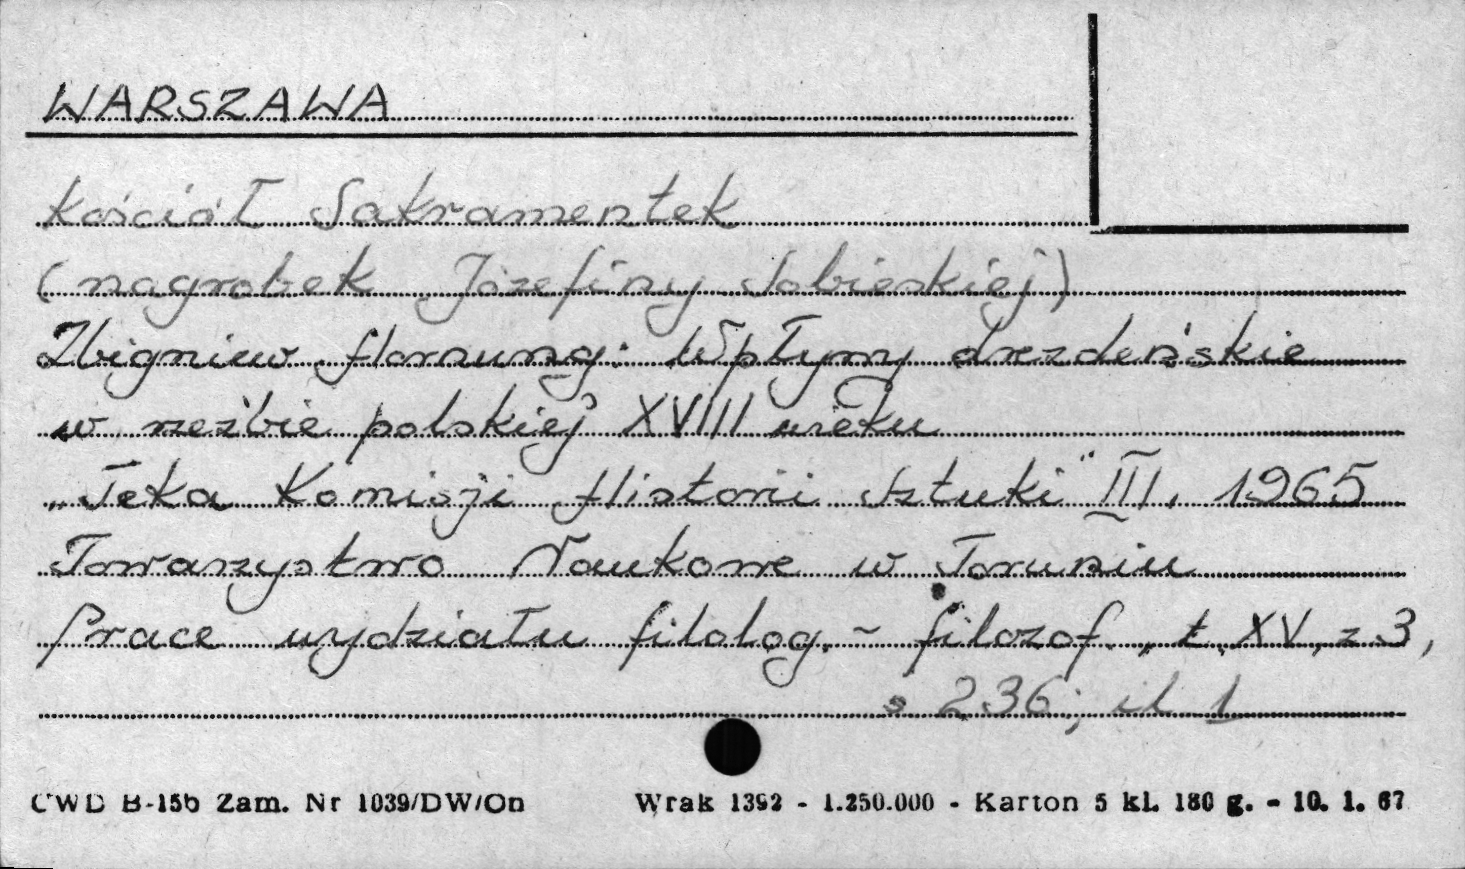 WARSZAWA
kościół Sakramentek
(nagrobek Józefiny Sobieskiej)
Zbigniew Hornung: Wpływy drezdeńskie
w rzeźbie polskiej XVIII wieku
„Teka Komisji Historii Sztuki" III, 1965
Towarzystwo Naukowe w Toruniu
Prace wydziału filolog. - filozof., t. XV, z 3,
s 236; il 1
CWD B-15b Zam. Nr 1039/DW/On Wrak 1392 - 1.250.000 - Karton 5 kl. 180 g. - 10. 1. 67